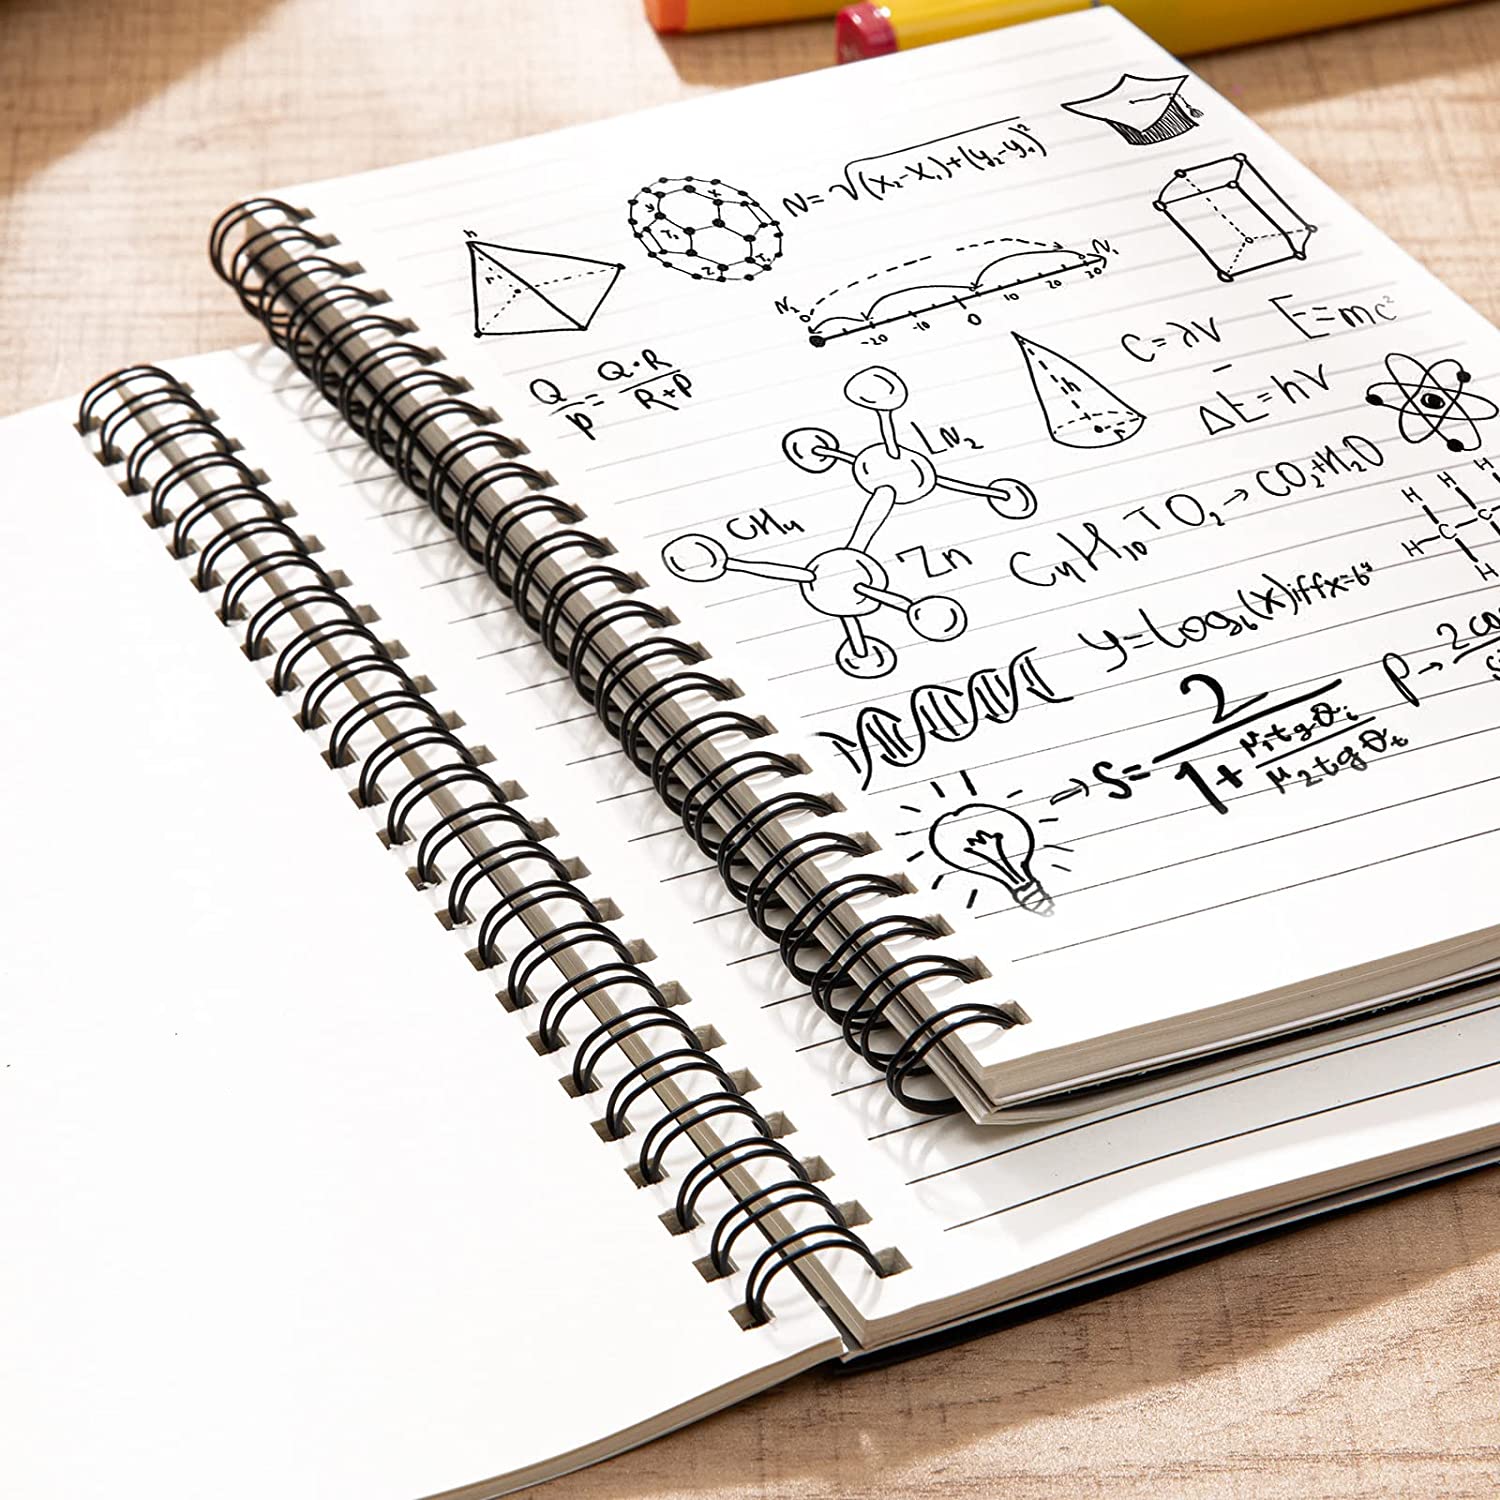 N=√(x₂-x₁)+(y₂-y₁)²
h
r
x
y
T₂
Z
T₁
N₂
N₁
-20 -10 0 10 20 30
Q/p = Q·R/R+P
C=λV
E=mc²
ΔE=hV
h
r
LN₂
CH₄
Zn
C₄H₁₀T O₂→CO₂+H₂O
H H H
H-C-C
H
y=log₆(x)iffx=6ʸ
S=2/1+μ₁tgθᵢ/μ₂tgθₜ
P→2co